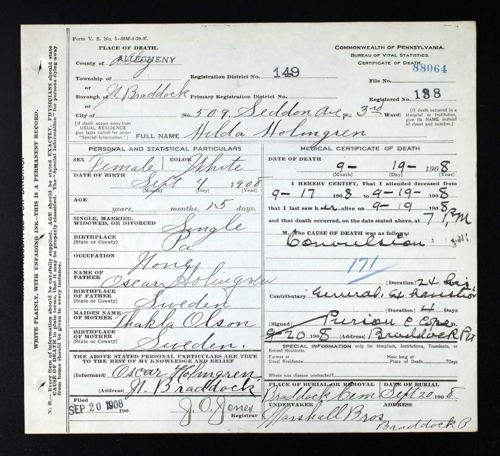 Form V. S. No. 5
PLACE OF DEATH.
County of ALLEGHENY
Township of
Borough of N. Braddock
City of
COMMONWEALTH OF PENNSYLVANIA.
BUREAU OF VITAL STATISTICS.
CERTIFICATE OF DEATH.
Registration District No. 149
File No. 88064
Primary Registration District No.
Registered No. 188
No. 509 Seddon Ave 3rd Ward
[If death occurs away from USUAL RESIDENCE give facts called for under "Special Information."]
[If death occurred in a Hospital or Institution, give its NAME instead of street and number.]
FULL NAME Hilda Holmgren
PERSONAL AND STATISTICAL PARTICULARS
SEX Female
COLOR White
DATE OF BIRTH Sept 1908
(Month) (Day) (Year)
AGE
years, months, 15 days
SINGLE, MARRIED, WIDOWED, OR DIVORCED Single
BIRTHPLACE (State or County) Pa
OCCUPATION None
NAME OF FATHER Oscar Holmgren
BIRTHPLACE OF FATHER (State or County) Sweden
MAIDEN NAME OF MOTHER Olson
BIRTHPLACE OF MOTHER (State or County) Sweden.
THE ABOVE STATED PERSONAL PARTICULARS ARE TRUE TO THE BEST OF MY KNOWLEDGE AND BELIEF
(Informant) Oscar Holmgren
(Address) N. Braddock
Filed SEP 20 1908 190
J. O. Jones
Registrar
MEDICAL CERTIFICATE OF DEATH
DATE OF DEATH
9-19-1908
(Month) (Day) (Year)
I HEREBY CERTIFY, That I attended deceased from
9-17 1908 to 9-19-1908
that I last saw alive on 9-19 1908
and that death occurred, on the date stated above, at 7 M
The CAUSE OF DEATH was as follows:
Convulsions
171
(Duration) 24 hrs.
Contributory General Exhaustion
(Duration) 4
(Signed)
9-20 1908 (Address) Braddock Pa
SPECIAL INFORMATION only for Hospitals, Institutions, Transients, or Recent Residents.
Former or Usual Residence
How long at Place of Death? Days
Where was disease contracted, If not at place of death?
PLACE OF BURIAL OR REMOVAL
DATE OF BURIAL
Braddock Cem Sept 20 1908
Marshall Bros
Braddock P
WRITE PLAINLY, WITH UNFADING INK—THIS IS A PERMANENT RECORD.